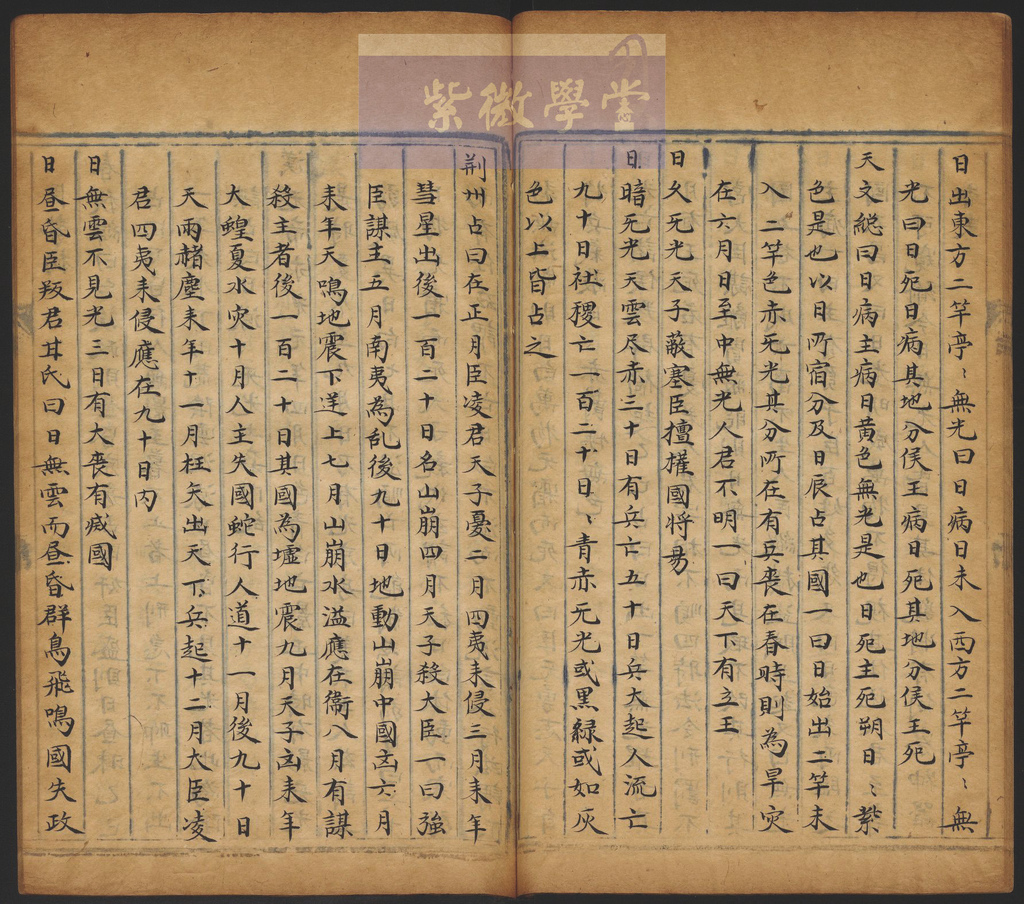 紫微學堂
日出東方二竿亭〻無光曰日病日未入西方二竿亭〻無
光曰日死日病其地分侯王病日死其地分侯王死
天文総曰日病主病日黄色無光是也日死主死朔日〻紫
色是也以日所宿分及日辰占其國一曰日始出二竿未
入二竿色赤无光其分所在有兵喪在春時則為旱灾
在六月日至中無光人君不明一曰天下有立王
日久无光天子蔽塞臣擅權國将易
日暗无光天雲尽赤三十日有兵亡五十日兵大起人流亡
九十日社稷亡一百二十日〻青赤无光或黒緑或如灰
色以上皆占之
荆州占曰在正月臣凌君天子憂二月四夷来侵三月来年
彗星出後一百二十日名山崩四月天子殺大臣一曰強
臣謀主五月南夷為乱後九十日地動山崩中國凶六月
来年天鳴地震下逆上七月山崩水溢應在衞八月有謀
殺主者後一百二十日其國為墟地震九月天子凶来年
大蝗夏水灾十月人主失國蛇行人道十一月後九十日
天雨赭塵来年十一月枉矢出天下兵起十二月大臣凌
君四夷来侵應在九十日内
日無雲不見光三日有大喪有滅國
日昼昏臣叛君甘氏曰日無雲而昼昏群鳥飛鳴國失政